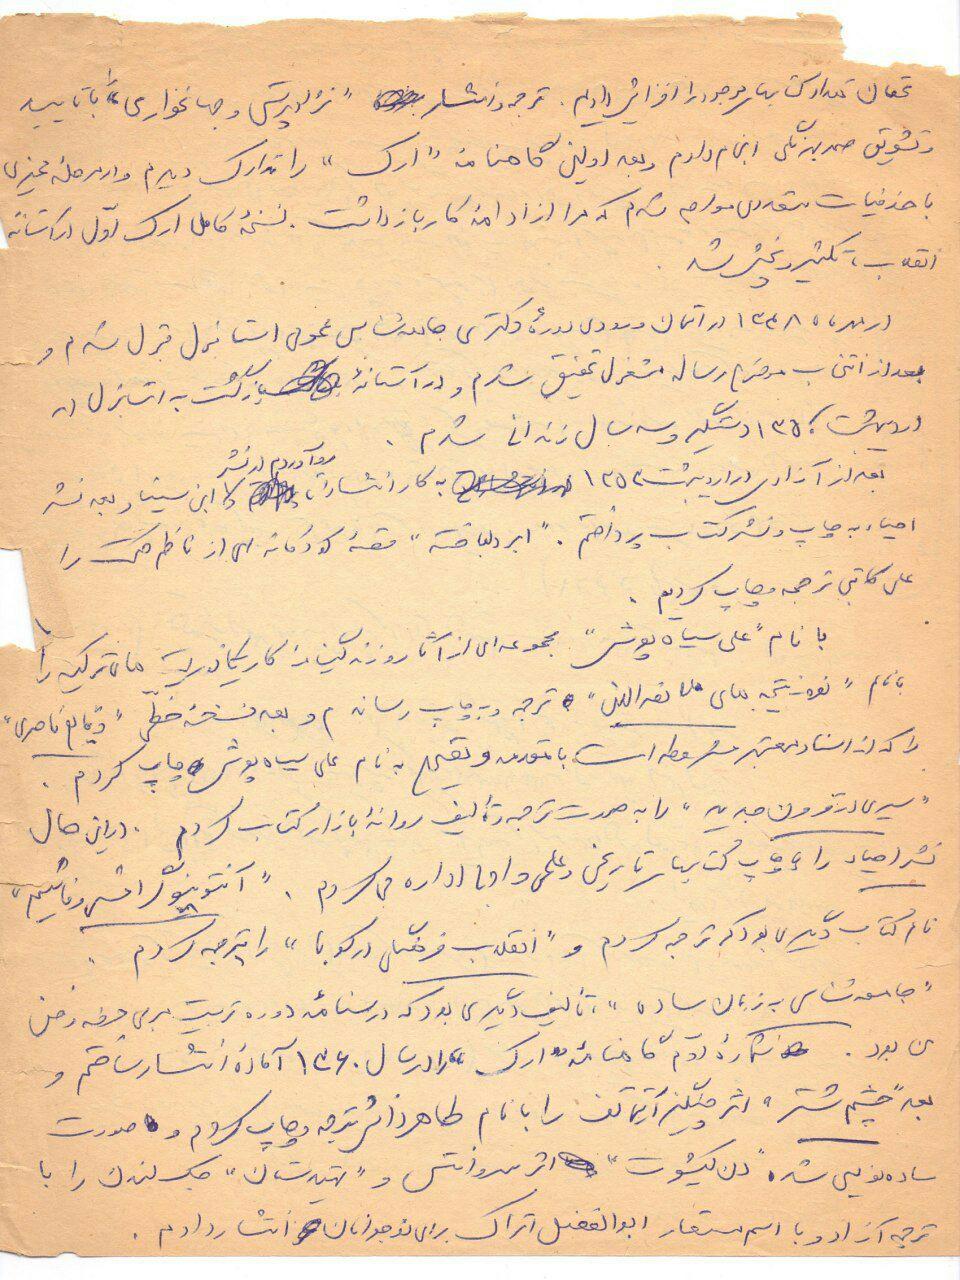 تعداد کتابهای موجود را افزایش دادم. ترجمه و انتشار "نژادپرستی و جهانخواری" با تأیید
و تشویق صمد بهرنگی انجام دادم و بعد اولین گاهنامهٔ "ارک" را تدارک دیدم و در مرحلهٔ ممیزی
با حذفیات متعددی مواجه شدم که مرا از ادامهٔ کار بازداشت. نسخهٔ کامل ارک اوّل در آستانهٔ
انقلاب، تکثیر و پخش شد.
در مهر ماه ۱۳۴۸ در امتحان ورودی دورهٔ دکترای جامعه‌شناسی عمومی استانبول قبول شدم و
بعد از انتخاب موضوع رساله مشغول تحقیق شدم و در آستانهٔ بازگشت به استانبول در
اردیبهشت ۱۳۵۰ دستگیر و سه سال زندانی شدم.
بعد از آزادی در اردیبهشت ۱۳۵۳ به کار انتشاراتی روآوردم در نشر ابن سینا و بعد نشر
احیاء به چاپ و نشر کتاب پرداختم. "ابر دلباخته" قصهٔ کودکانه‌ای از ناظم حکمت را
علی کاتبی ترجمه و چاپ کردیم.
با نام "علی سیاه‌پوش" مجموعه‌ای از آثار روزنه گینه از کاریکاتوریست‌های ترکیه را
با نام " ملا نصرالدین" ترجمه و به چاپ رساندم و بعد نسخهٔ خطّی "وقایع ناصری"
را که از اسناد معتبر مشروطه است با مقدمه و تنقیح به نام علی سیاه‌پوش چاپ کردم.
"سیری در قرون جدید" را به صورت ترجمه و تألیف روانهٔ بازار کتاب کردم. در این حال
نشر احیاء را با چاپ کتابهای تاریخی و علمی و ادبی اداره می‌کردم. "آنتونیوگرامشی و فاشیسم"
نام کتاب دیگری بود که ترجمه کردم و "انقلاب فرهنگی در کوبا" را ترجمه کردم.
"جامعه‌شناسی به زبان ساده"، تألیف دیگری بود که درسنامهٔ دوره تربیت مربی حرفه و فن
می بود. شمارهٔ دوّم گاهنامهٔ "ارک" را در سال ۱۳۶۰ آمادهٔ انتشار ساختم و
بعد "چشم شتر" اثر چنگیز آیتماتف را با نام طاهر ترجمه و چاپ کردم و صورت
ساده‌نویسی شدهٔ "دن کیشوت" اثر سروانتس و جک لندن را با
ترجمهٔ آزاد و با اسم مستعار ابوالفضل اتراک برای نوجوانان انتشار دادم.